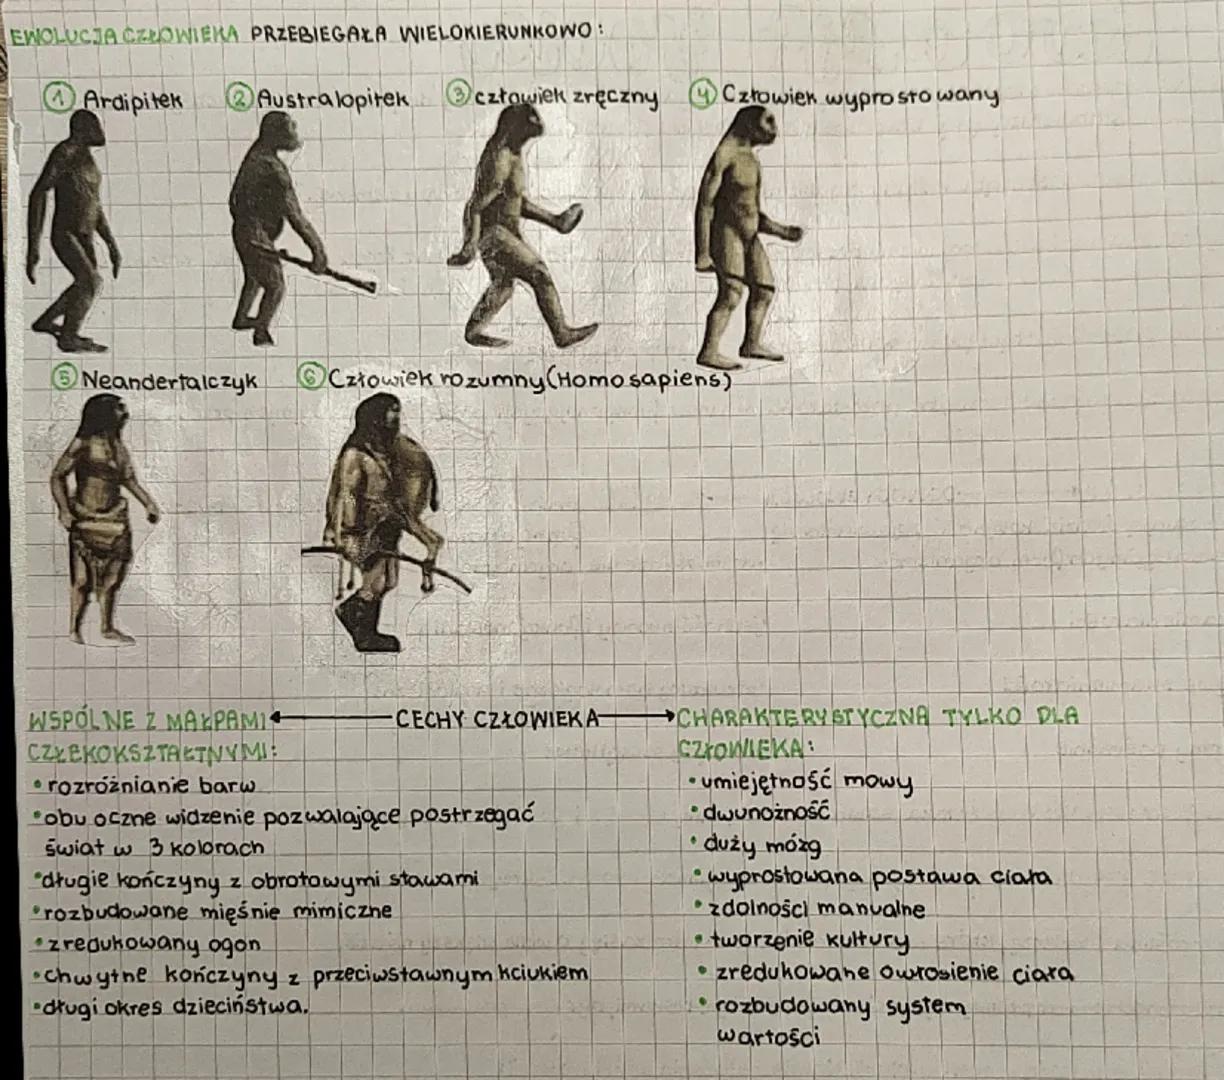 EWOLUCJA CZŁOWIEKA PRZEBIEGAŁA WIELOKIERUNKOWO:
① Ardipitek ② Australopitek ③ człowiek zręczny ④ Człowiek wyprostowany
⑤ Neandertalczyk ⑥ Człowiek rozumny (Homo sapiens)
WSPÓLNE Z MAŁPAMI ← CECHY CZŁOWIEKA → CHARAKTERYSTYCZNA TYLKO DLA
CZŁEKOKSZTAŁTNYMI:
• rozróżnianie barw
• obuoczne widzenie pozwalające postrzegać
świat w 3 kolorach
• długie kończyny z obrotowymi stawami
• rozbudowane mięśnie mimiczne
• zredukowany ogon
• chwytne kończyny z przeciwstawnym kciukiem
• długi okres dzieciństwa.
CZŁOWIEKA:
• umiejętność mowy
• dwunożność
• duży mózg
• wyprostowana postawa ciała
• zdolności manualne
• tworzenie kultury
• zredukowane owłosienie ciała
• rozbudowany system
wartości